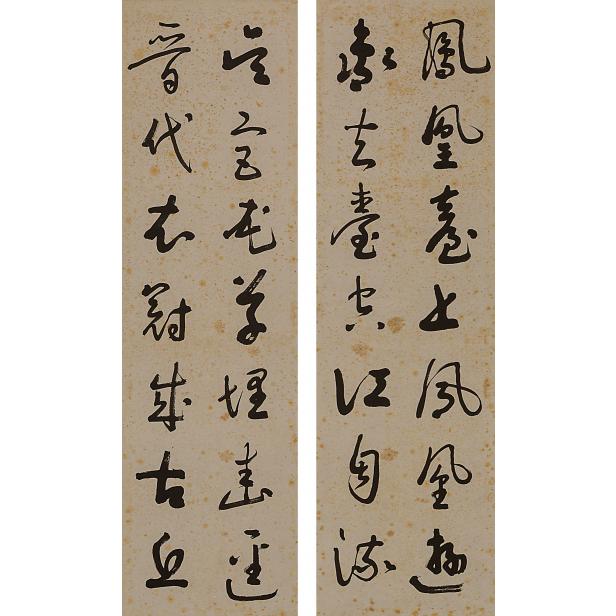 鳳凰臺上鳳凰遊
鳳去臺空江自流
吳宮花草埋幽徑
晉代衣冠成古丘